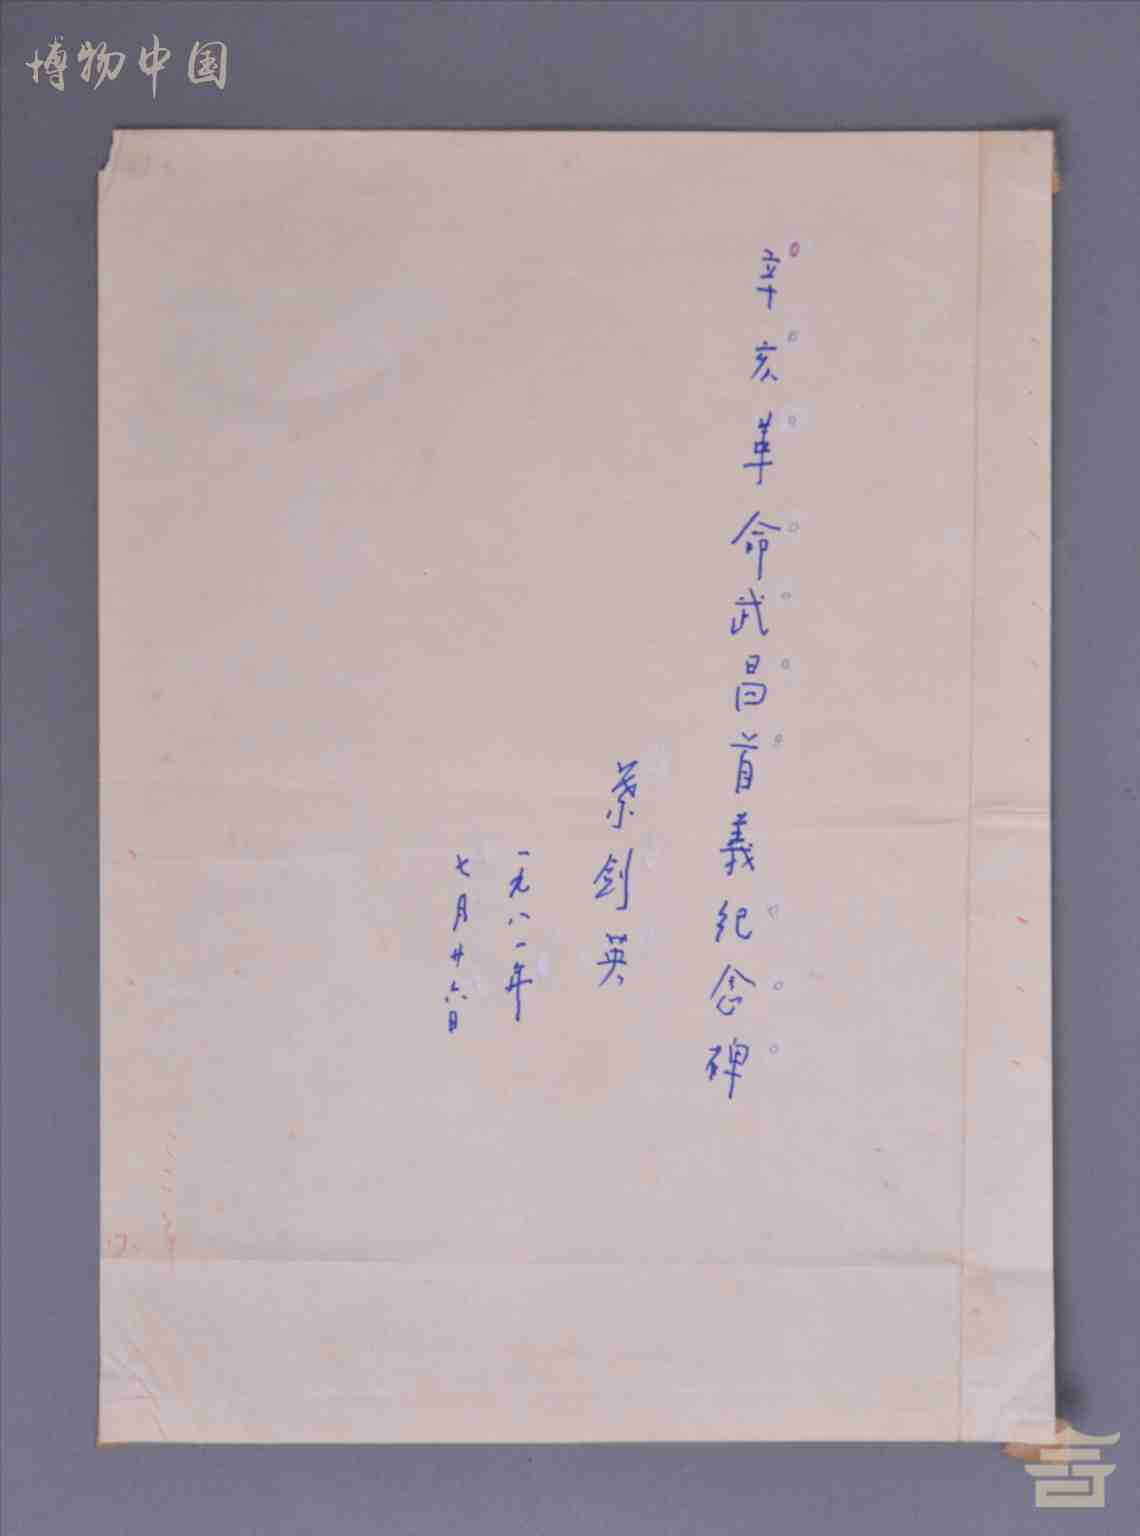 博物中国
辛亥革命武昌首義紀念碑
葉劍英
一九八一年
七月廿六日